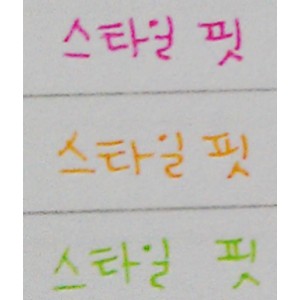 스타일 핏
스타일 핏
스타일 핏